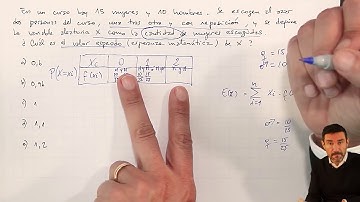 En un curso hay 15 mujeres y 10 hombres. Se escogen al azar
dos personas del curso, una tras otra y con reposición, y se define
la variable aleatoria X como la cantidad de mujeres escogidas
¿Cuál es el valor esperado (esperanza matemática) de X?
a) 0,6
b) 0,96
c) 1
d) 1,1
e) 1,2
P(X=xi)
xi 0 1 2
f(xi)
E(X) = Σ xi · f(
i=1
♀ = 15
♂ = 10
♂ = 10/25
♀ = 15/25